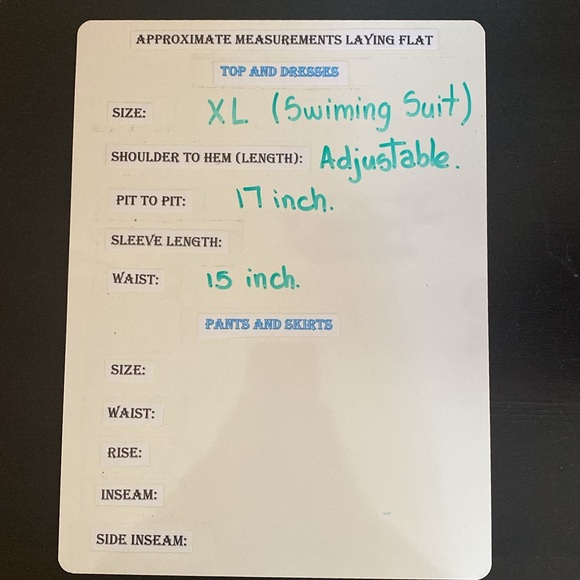 APPROXIMATE MEASUREMENTS LAYING FLAT
TOP AND DRESSES
SIZE: XL (Swiming Suit)
SHOULDER TO HEM (LENGTH): Adjustable.
PIT TO PIT: 17 inch.
SLEEVE LENGTH:
WAIST: 15 inch.
PANTS AND SKIRTS
SIZE:
WAIST:
RISE:
INSEAM:
SIDE INSEAM: